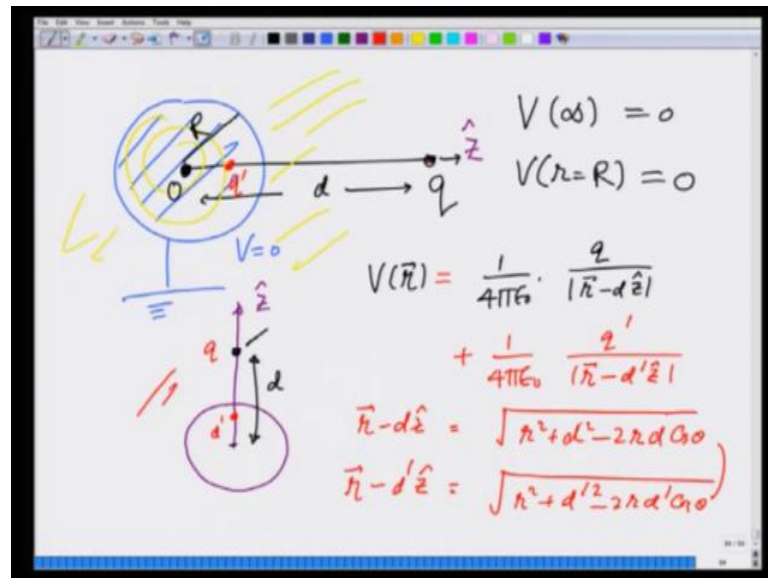 File Edit View Insert Actions Tools Help
V(∞) = 0
R
ẑ
q'
O
d
q
V(r=R) = 0
V=0
V(r⃗) = 1/4πε₀ · q/|r⃗-dẑ|
ẑ
q
+ 1/4πε₀ q'/|r⃗-d'ẑ|
d
d'
r⃗-dẑ = √r²+d²-2rd Cosθ
r⃗-d'ẑ = √r²+d'²-2rd'Cosθ